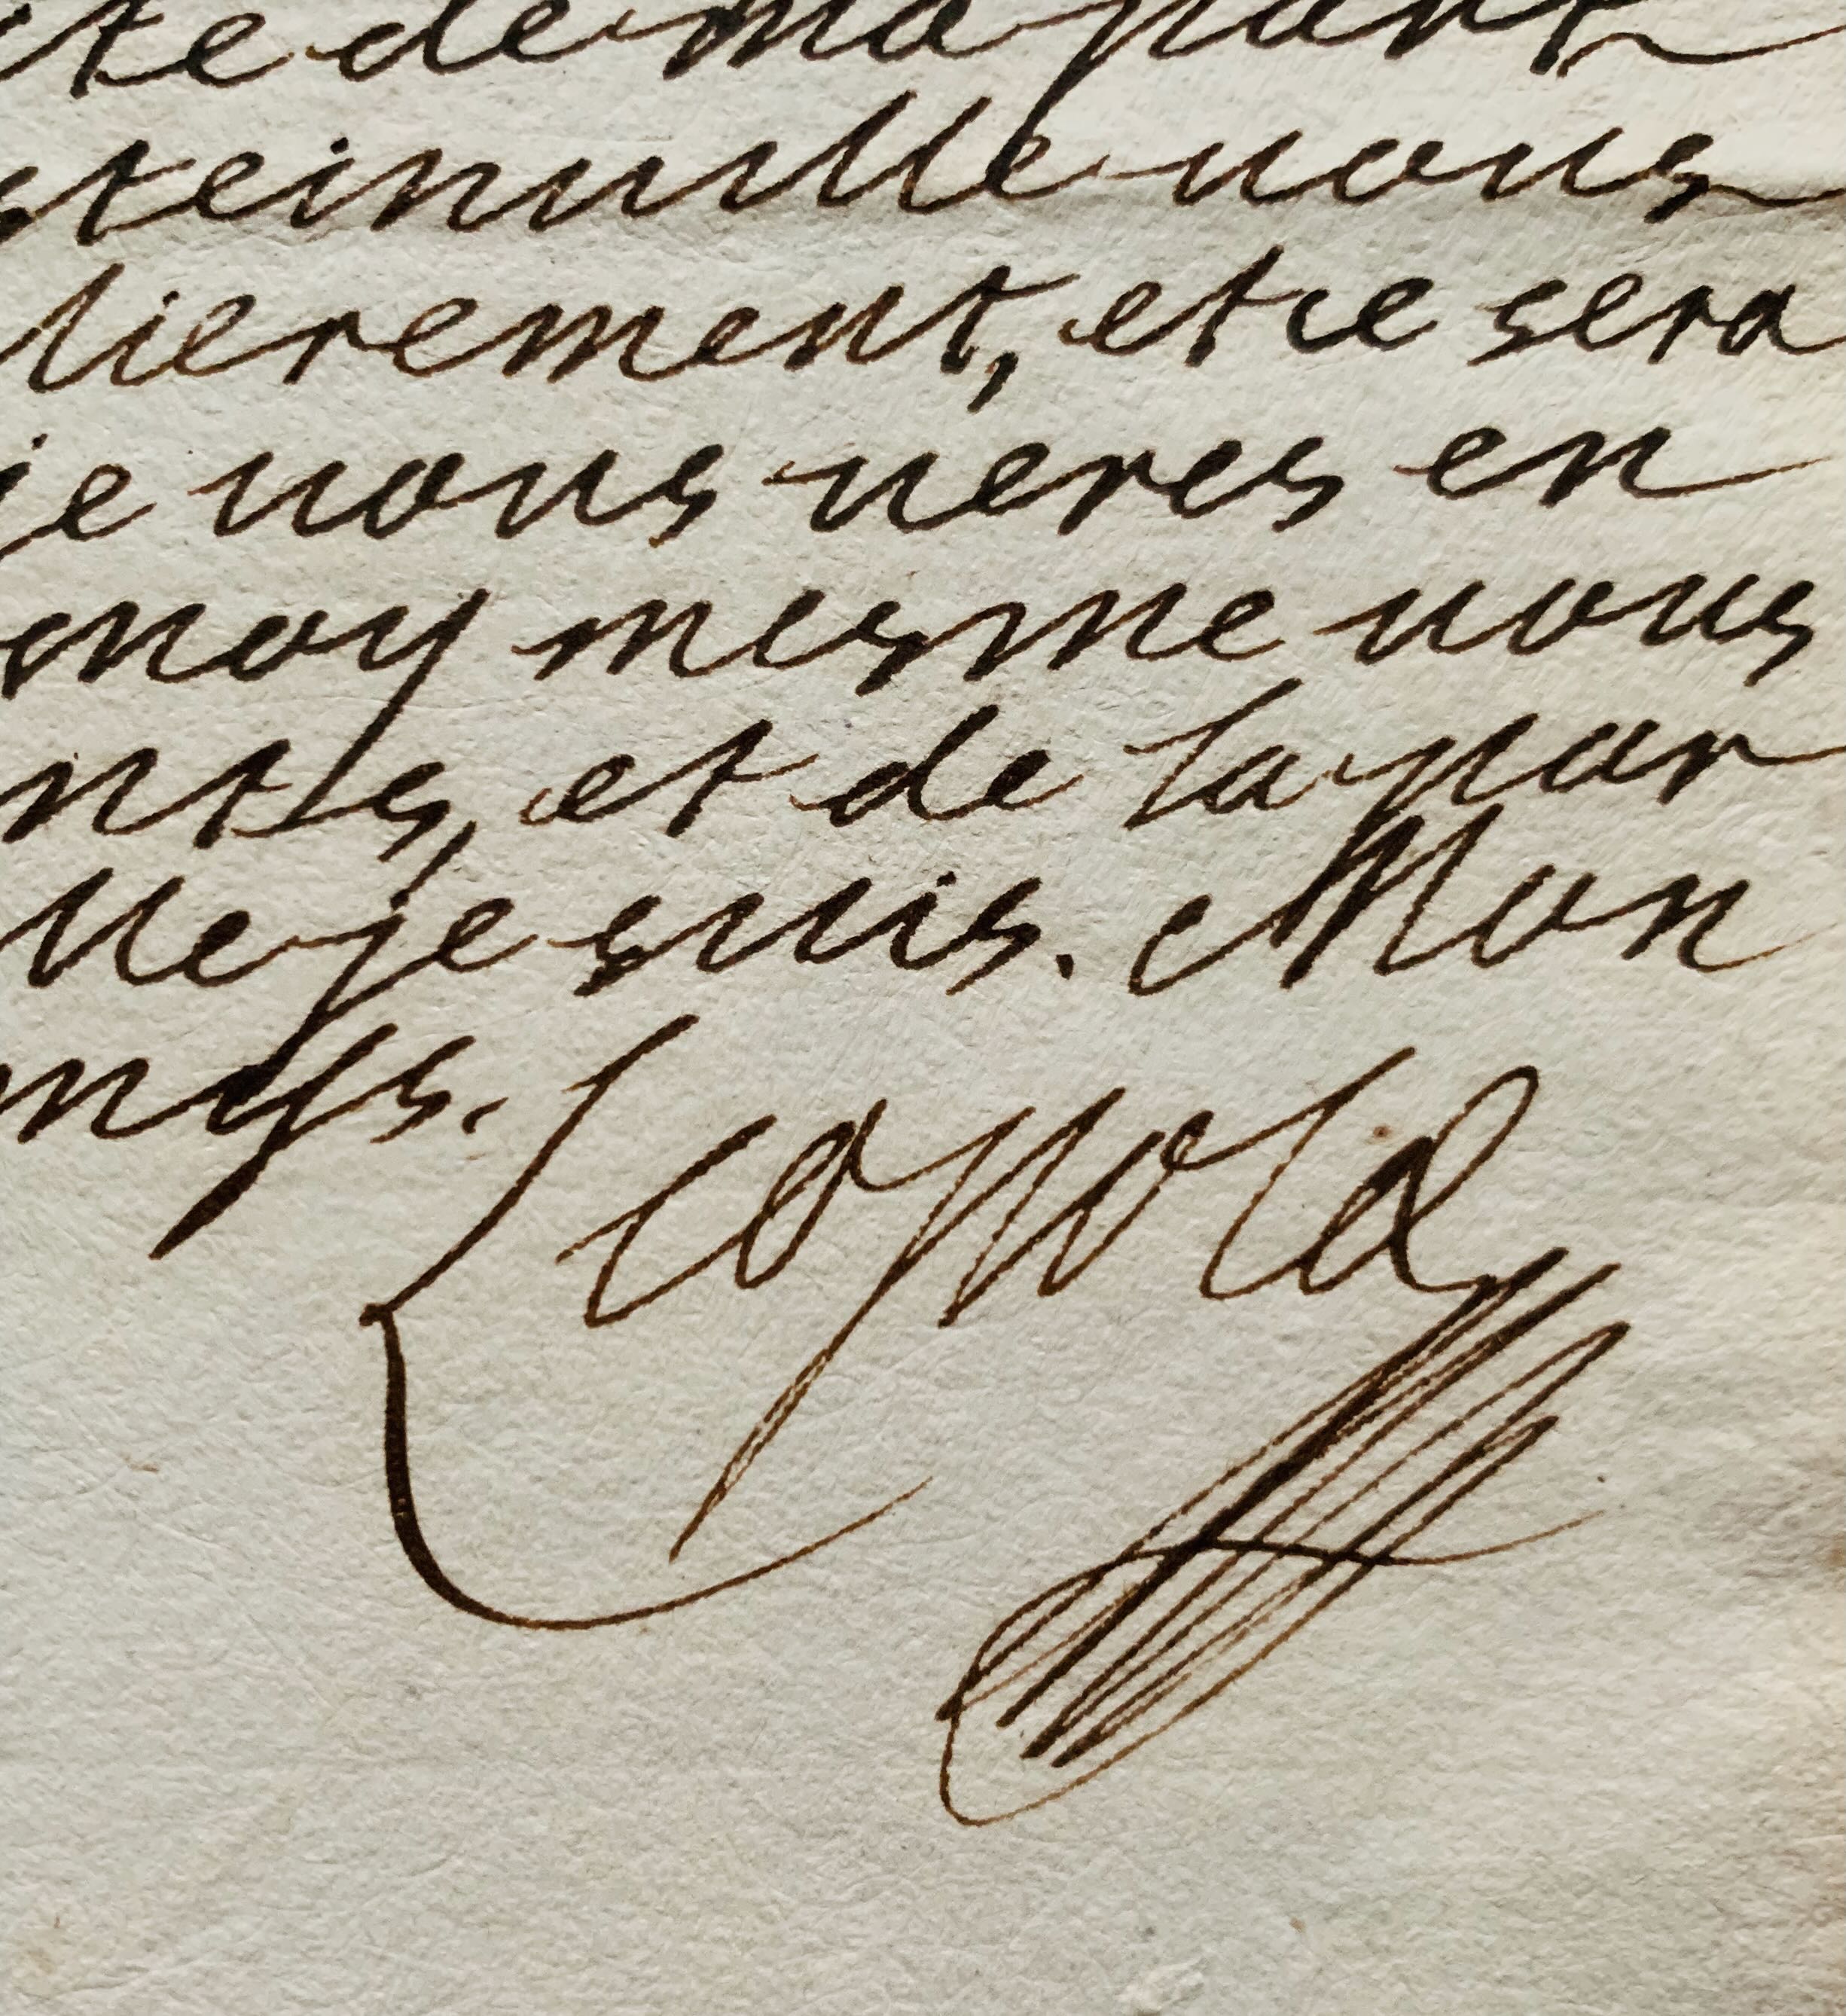 te de ma part
steinville vous
lierement, et ce sera
je vous veres en
moy mesme vous
nts, et de la par
lle je suis. Mon
Leopold